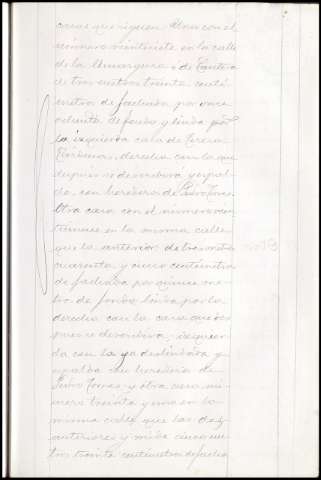 casas que siguen: Una con el
número veintisiete en la calle
de la Amargura de
de tres metros treinta centí-
metros de fachada por once
ochenta de fondo y linda por
la izquierda casa de Teresa
derecha con la que
después se describirá y espal-
da, con herederos de Pedro Tomas.
Otra casa con el número vein-
tinueve en la misma calle
que la anterior, de tres metros
cuarenta y cinco centímetros
de fachada por quince me-
tros de fondo, linda por la
derecha con la casa que des-
pues se describirá; izquier-
da con la ya deslindada y
espalda con herederos de
Pedro Tomas y otra casa nú-
mero treinta y uno en la
misma calle que las dos
anteriores y mide cinco me-
tros treinta centímetros de facha